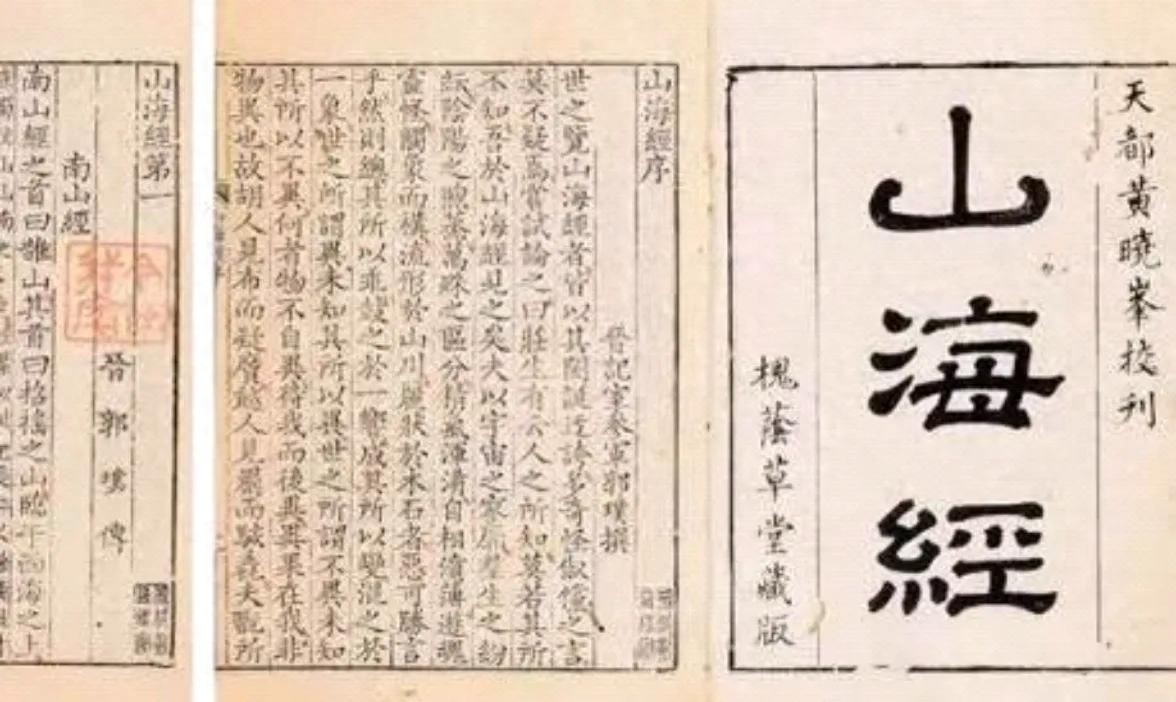 天都黃曉峯校刊
山海經
槐蔭草堂藏版
山海經序
晉記室參軍郭璞撰
世之覽山海經者皆以其閎誕迂誇多奇怪俶儻之言
莫不疑焉嘗試論之曰莊生有云人之所知莫若其所
不知吾於山海經見之矣夫以宇宙之寥廓羣生之紛
紜陰陽之煦蒸萬殊之區分精氣渾淆自相濆薄遊魂
靈怪觸象而構流形於山川麗狀於木石者惡可勝言
乎然則總其所以乖鼓之於一響成其所以變混之於
一象世之所謂異未知其所以異世之所謂不異未知
其所以不異何者物不自異待我而後異異果在我非
物異也故胡人見布而疑黂越人見罽而駭毳夫翫所
山海經第一
晉郭璞傳
南山經
南山經之首曰䧿山其首曰招搖之山臨于西海之上